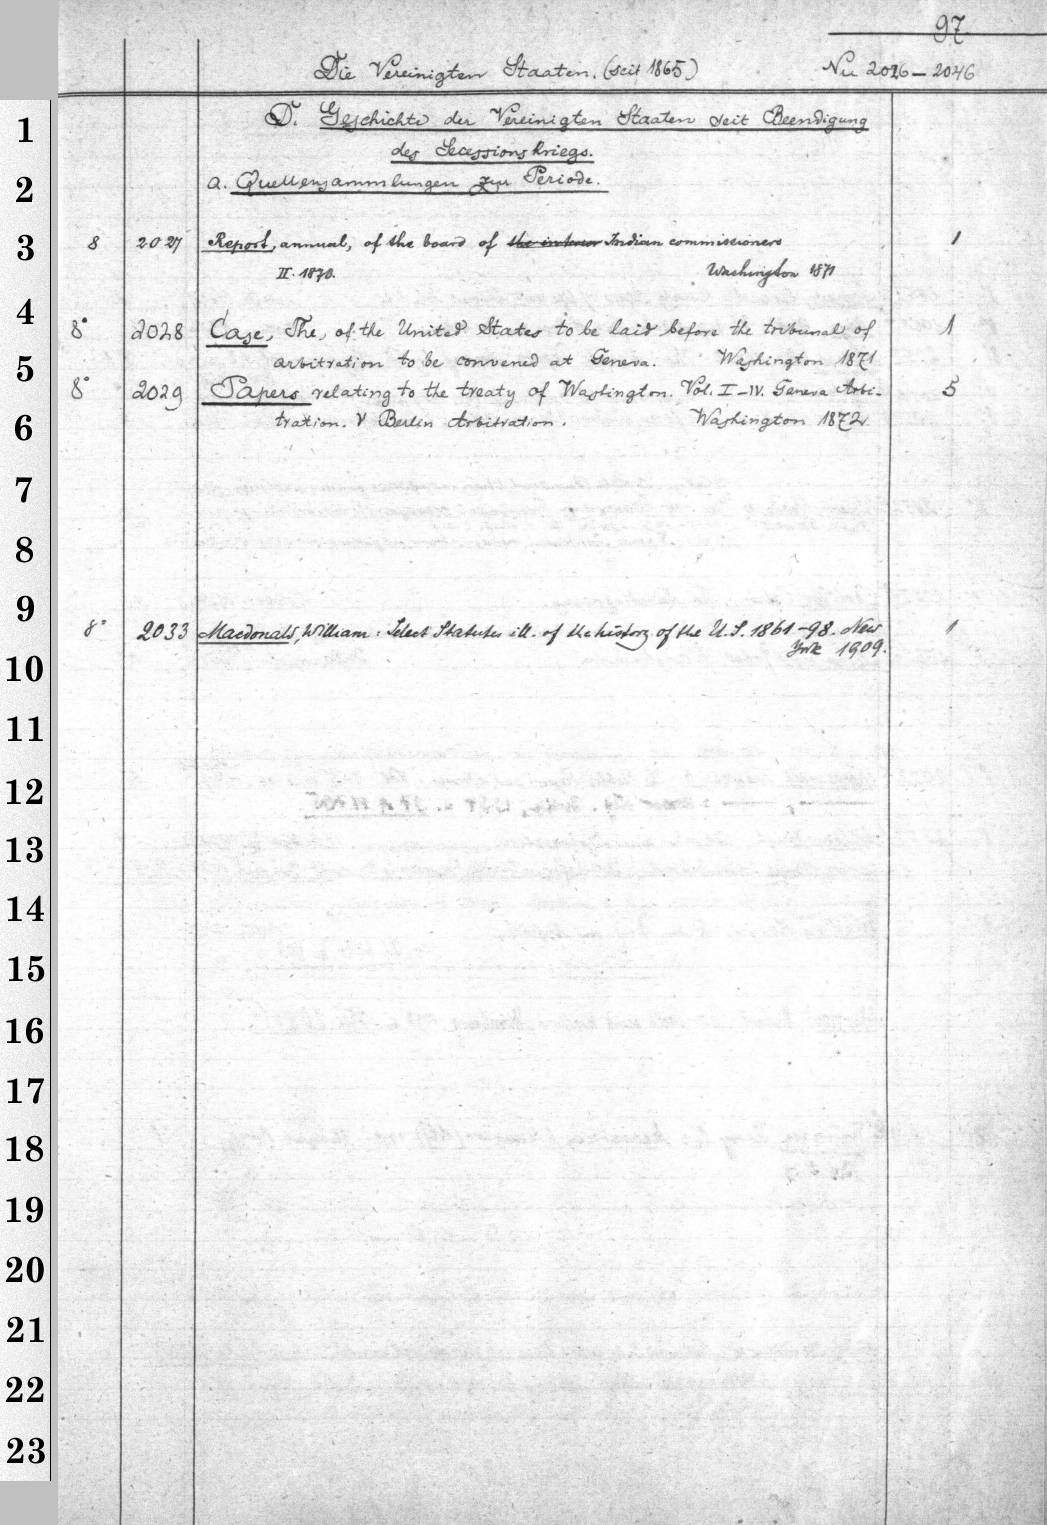 97
Die Vereinigten Staaten. (seit 1865) Nu 2026-2046
D. Geschichte der Vereinigten Staaten seit Beendigung
des Secessionskriegs.
a. Quellensammlungen zur Periode.
8 2027 Report, annual, of the board of the interior Indian commissioners 1
II. 1870. Washington 1871
8° 2028 Case, The, of the United States to be laid before the tribunal of 1
arbitration to be convened at Geneva. Washington 1871
8° 2029 Papers relating to the treaty of Washington. Vol. I-IV. Geneva Arbi- 5
tration. V Berlin Arbitration. Washington 1872
8° 2033 Macdonald, William: Select Statutes ill. of the history of the U.S. 1861-98. New 1
York 1909.
1
2
3
4
5
6
7
8
9
10
11
12
13
14
15
16
17
18
19
20
21
22
23